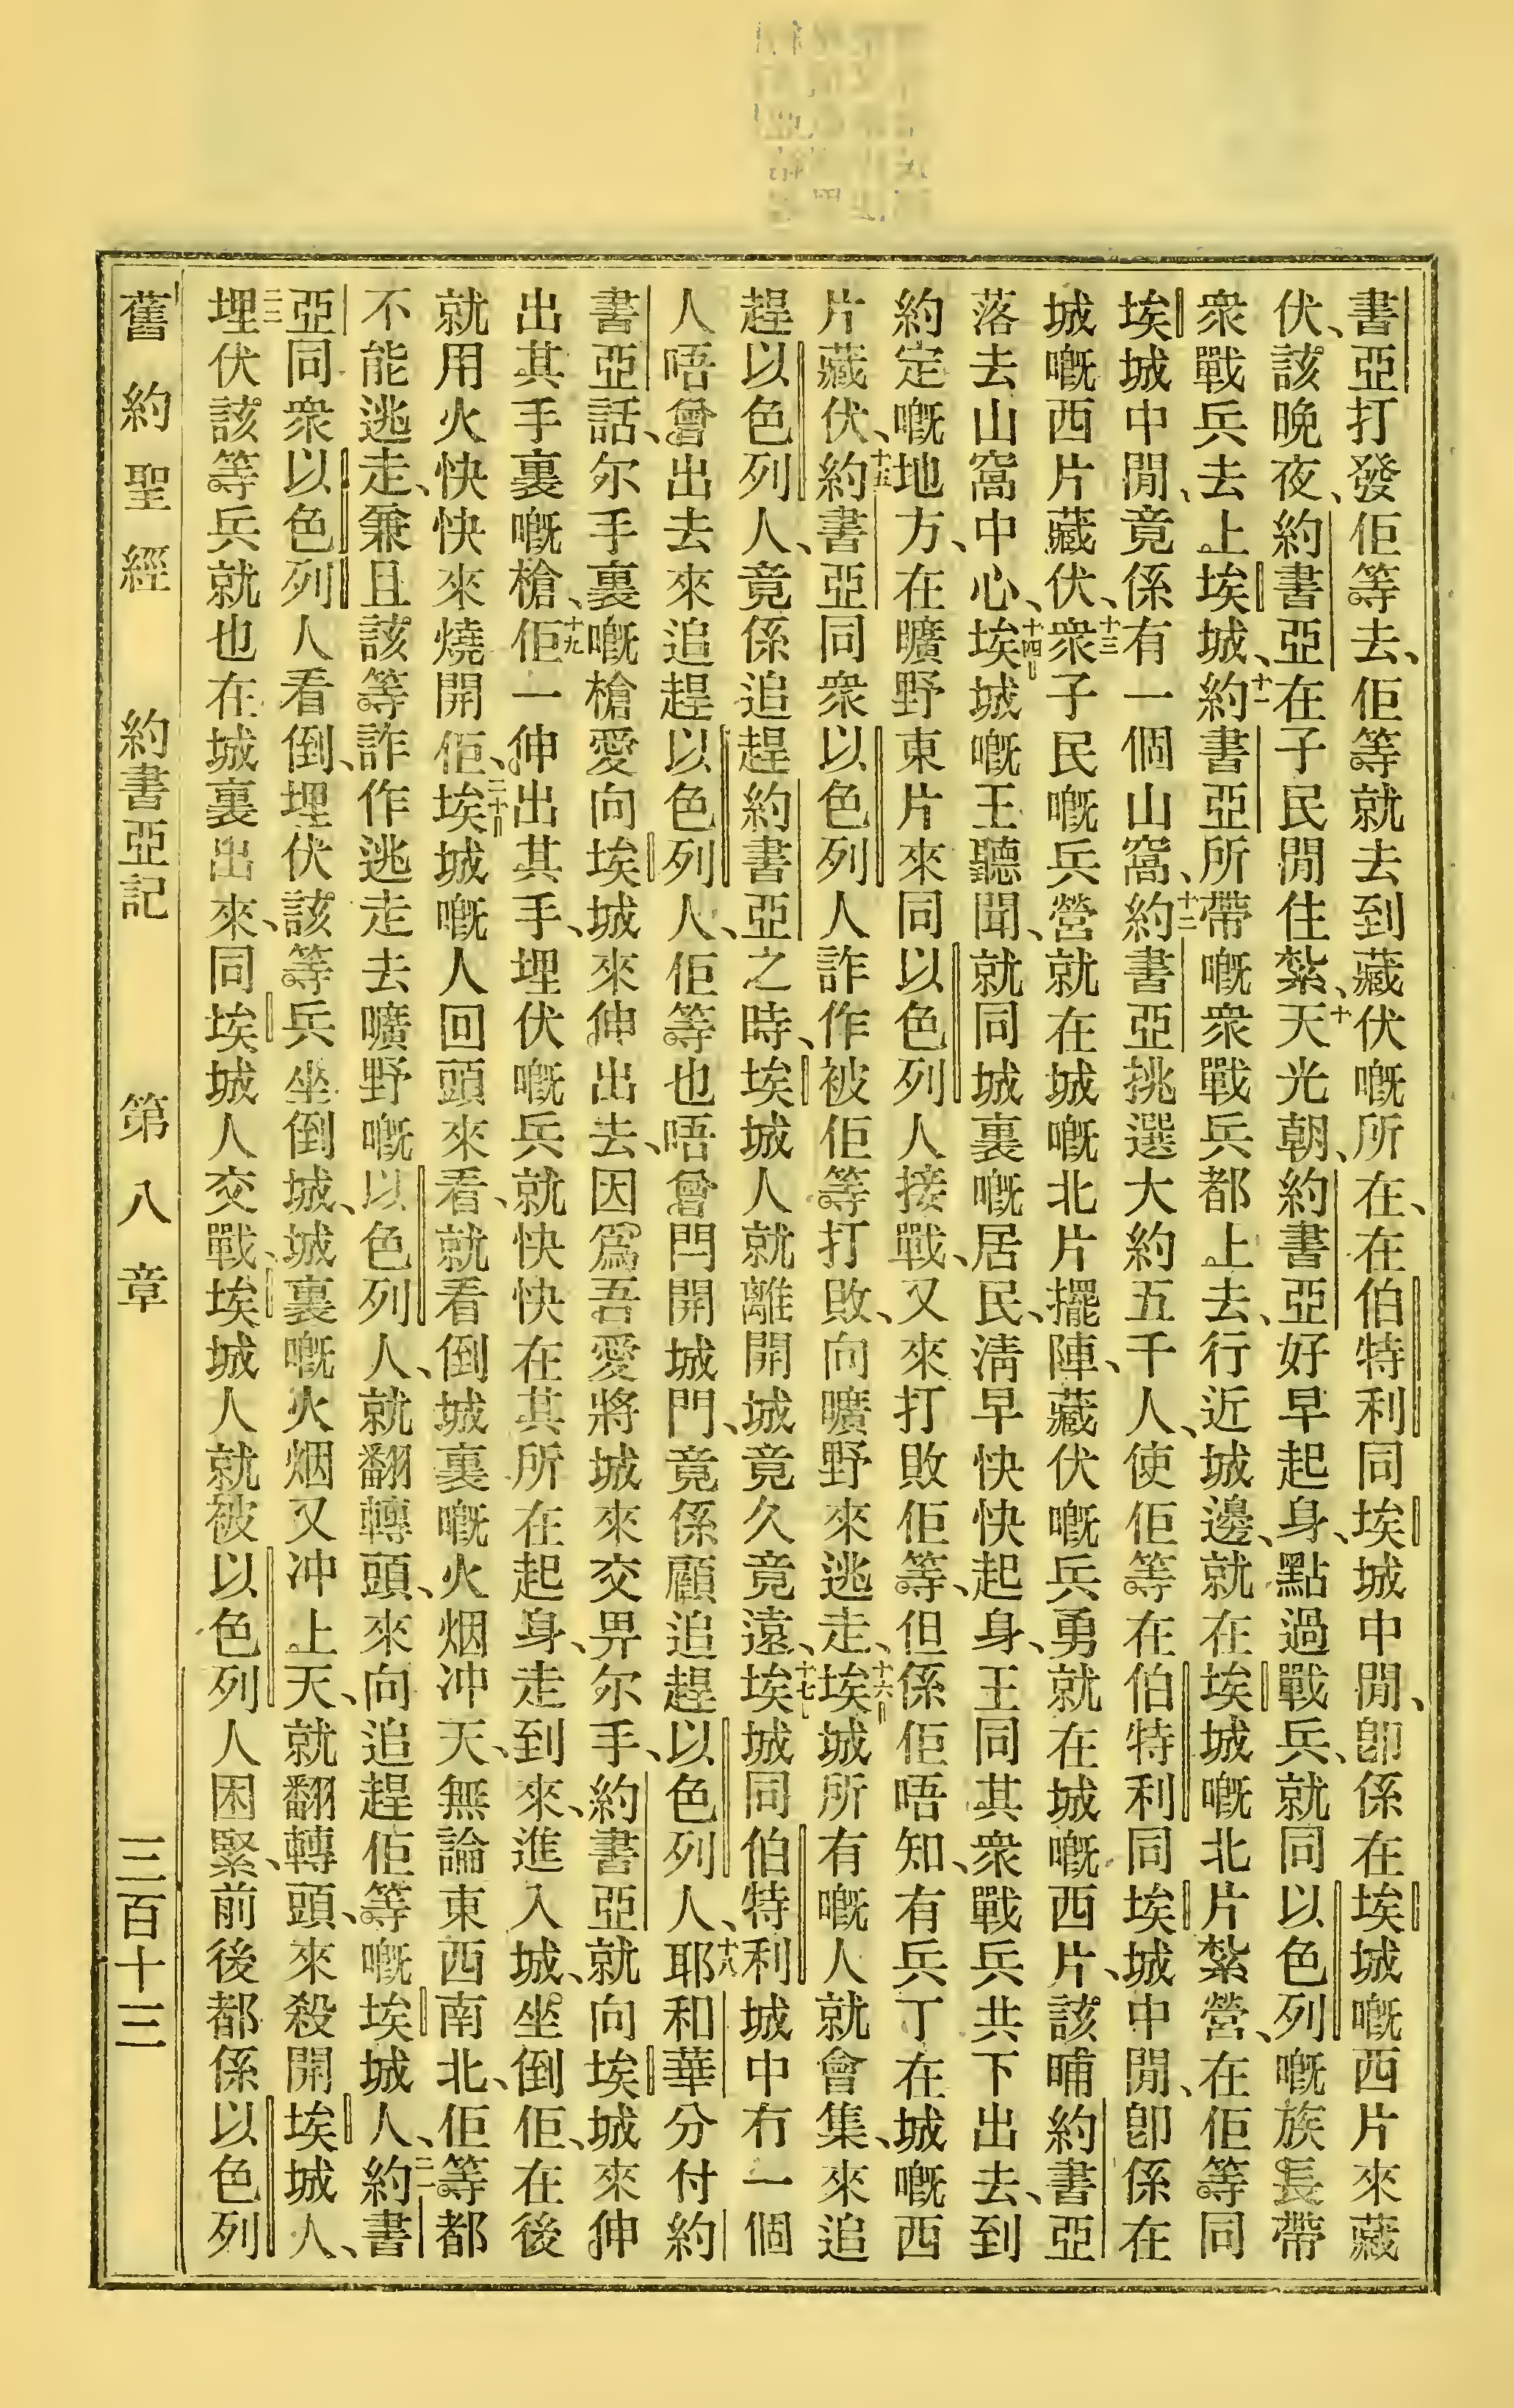 書亞打發佢等去、佢等就去到藏伏嘅所在、在伯特利同埃城中閒、卽係在埃城嘅西片來藏
伏、該晚夜、約書亞在子民閒住紮、十天光朝、約書亞好早起身、點過戰兵、就同以色列嘅族長帶
衆戰兵去上埃城、十一約書亞所帶嘅衆戰兵都上去、行近城邊、就在埃城嘅北片紮營、在佢等同
埃城中閒、竟係有一個山窩、十二約書亞挑選大約五千人、使佢等在伯特利同埃城中閒、卽係在
城嘅西片藏伏、十三衆子民嘅兵營就在城嘅北片擺陣、藏伏嘅兵勇就在城嘅西片、該晡約書亞
落去山窩中心、十四埃城嘅王聽聞、就同城裏嘅居民、淸早快快起身、王同其衆戰兵共下出去、到
約定嘅地方、在曠野東片來同以色列人接戰、又來打敗佢等、但係佢唔知、有兵丁在城嘅西
片藏伏、十五約書亞同衆以色列人詐作被佢等打敗、向曠野來逃走、十六埃城所有嘅人就會集、來追
趕以色列人、竟係追趕約書亞之時、埃城人就離開城竟久竟遠、十七埃城同伯特利城中冇一個
人唔曾出去來追趕以色列人、佢等也唔曾閂開城門、竟係顧追趕以色列人、十八耶和華分付約
書亞話、尔手裏嘅槍愛向埃城來伸出去、因爲吾愛將城來交畀尔手、約書亞就向埃城來伸
出其手裏嘅槍、十九佢一伸出其手、埋伏嘅兵就快快在其所在起身、走到來、進入城、坐倒佢、在後
就用火快快來燒開佢、二十埃城嘅人回頭來看、就看倒城裏嘅火烟冲天、無論東西南北、佢等都
不能逃走、兼且該等詐作逃走去曠野嘅以色列人、就翻轉頭、來向追趕佢等嘅埃城人、二一約書
亞同衆以色列人看倒、埋伏該等兵坐倒城、城裏嘅火烟又冲上天、就翻轉頭、來殺開埃城人、
二二埋伏該等兵就也在城裏出來、同埃城人交戰、埃城人就被以色列人困緊、前後都係以色列
舊約聖經 約書亞記 第八章 三百十三